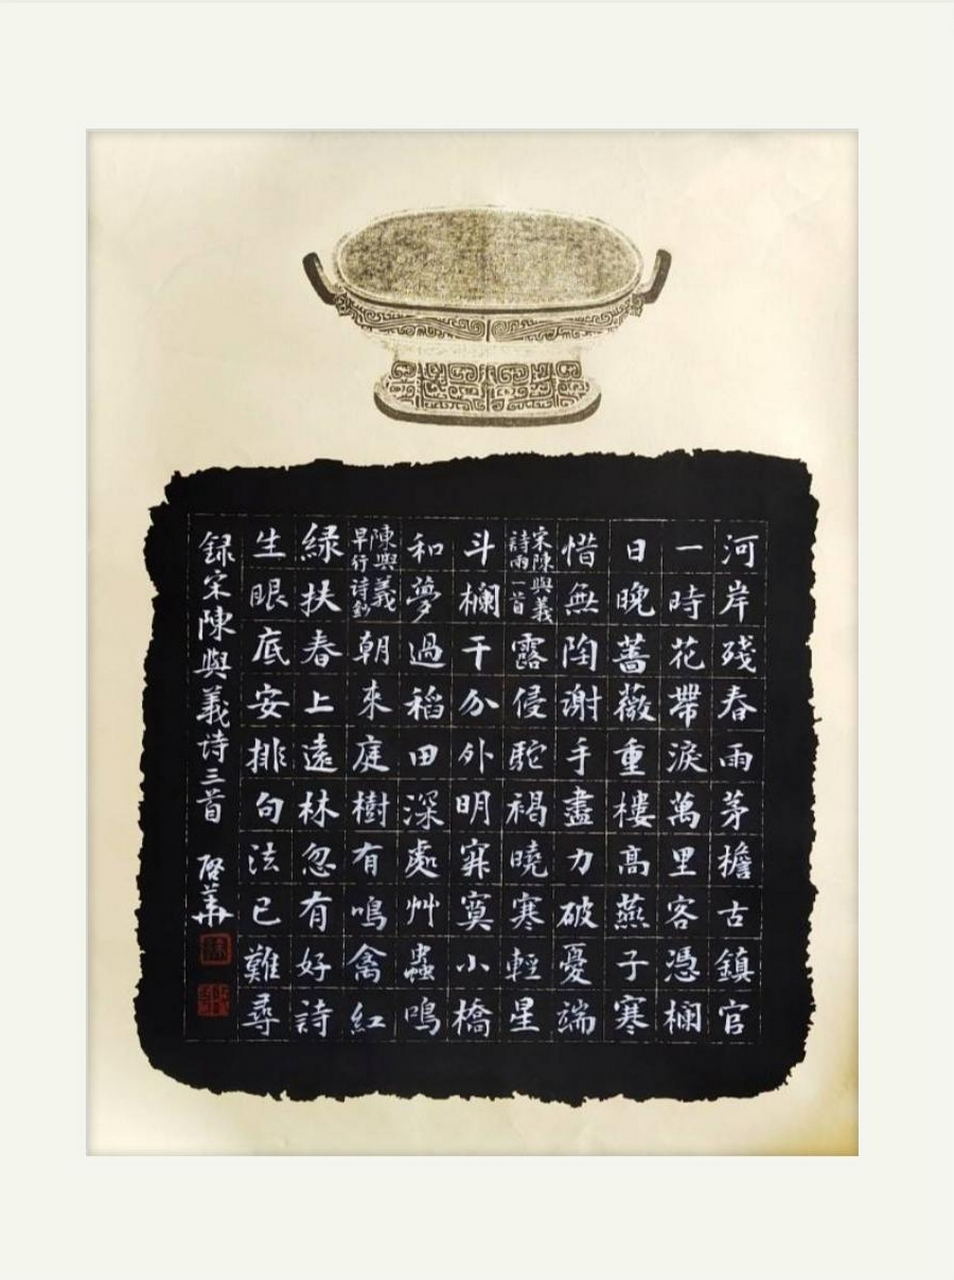 河岸殘春雨茅檐古鎮官
一時花帶淚萬里客憑欄
日晚薔薇重樓高燕子寒
惜無陶謝手盡力破憂端
宋陳與義
詩雨一首
露侵駝褐曉寒輕星
斗欄干分外明寂寞小橋
和夢過稻田深處艸蟲鳴
陳與義
早行詩鈔
朝來庭樹有鳴禽紅
緑扶春上遠林忽有好詩
生眼底安排句法已難尋
録宋陳與義詩三首 啓華